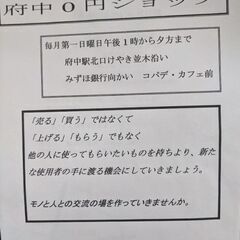 府中0円ショップ
毎月第一日曜日午後1時から夕方まで
府中駅北口けやき並木沿い
みずほ銀行向かい　コバデ・カフェ前
「売る」「買う」ではなくて
「上げる」「もらう」でもなく
他の人に使ってもらいたいものを持ちより、新た
な使用者の手に渡る機会にしていきましょう。
モノと人との交流の場を作っていきませんか。